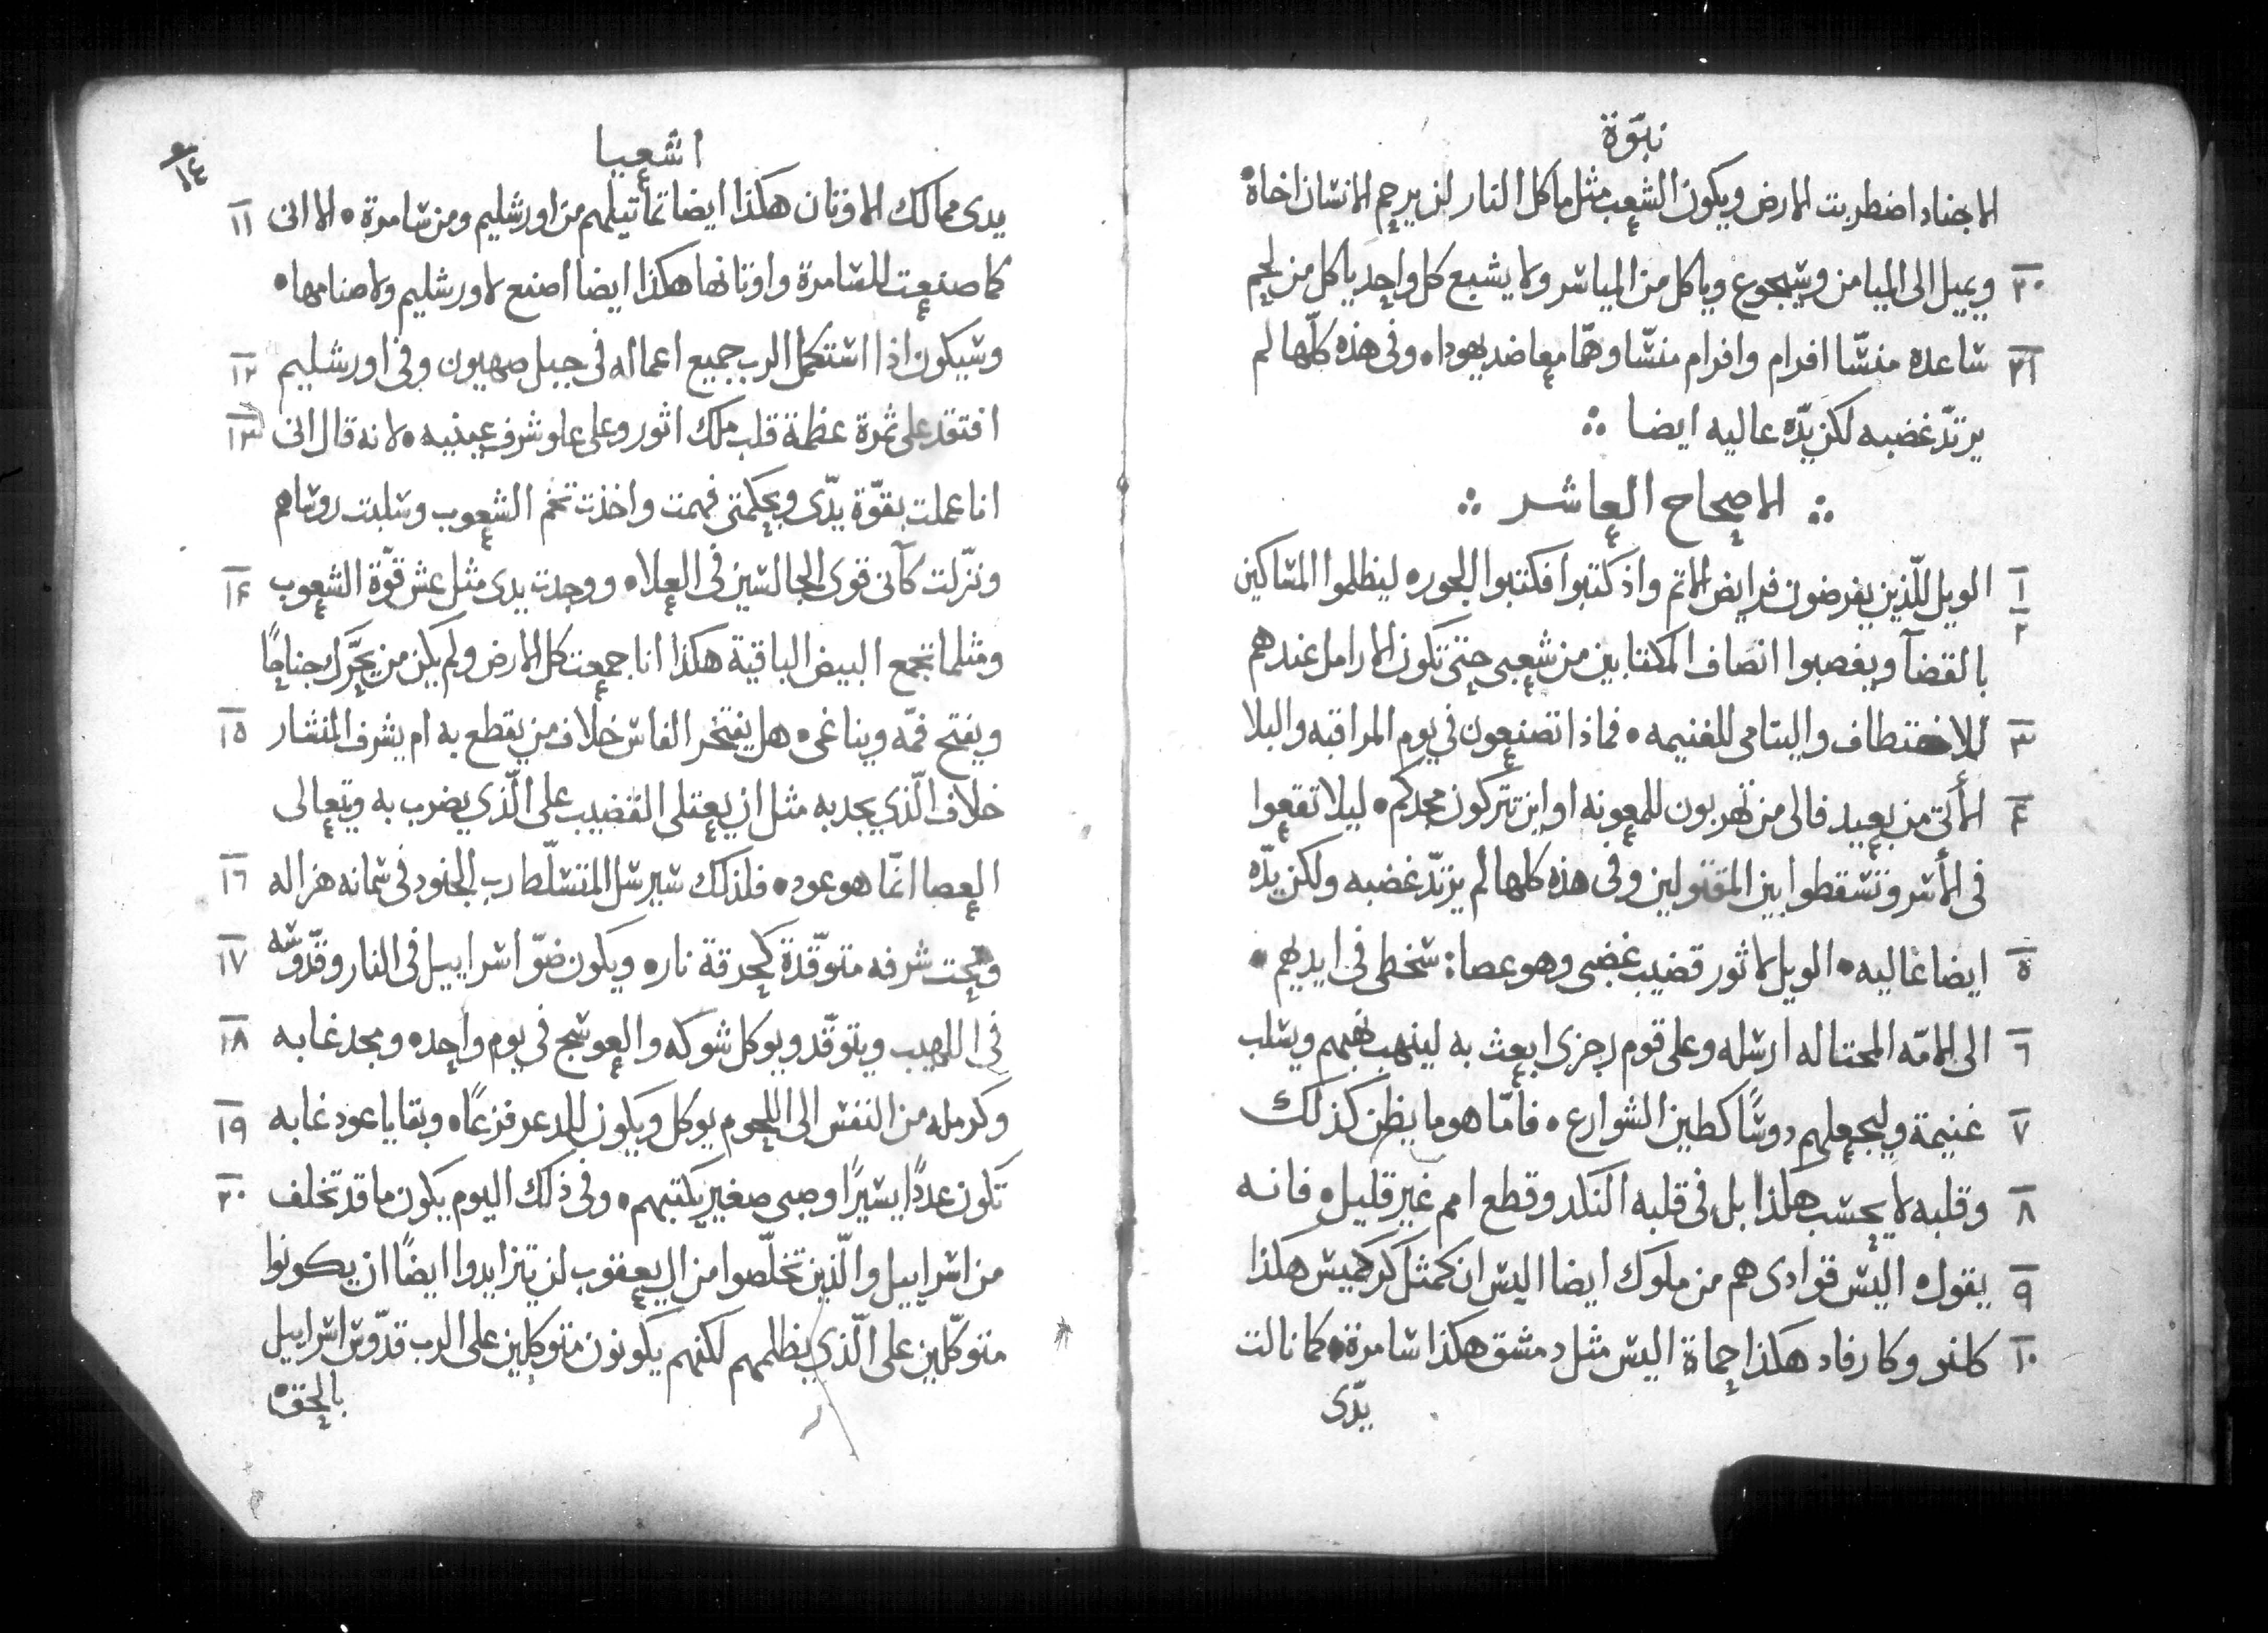 نبوّة
الاجناد اضطربت الارض ويكون الشعب مثل ماكل النار لن يرحم الانسان اخاه
٢٠ ويميل الى الميامن وسيجوع وياكل من المياسر ولا يشبع كل واحد ياكل من لحم
٢١ ساعده منسّا افرام وافرام منسّا وهمّا معا ضد يهودا ٥ وفى هذه كلّها لم
يرتدّ غضبه لكن يدّه عاليه ايضا ∴
∴ الاصحاح العاشر ∴
١ ٢ الويل للّذين يفرضون فرايض الاتم واذ كتبوا فكتبوا الجور ٥ ليظلموا المساكين
بالقضآ ويغصبوا انصاف المكتابين من شعبى حتى تكون الارامل عندهم
٣ للاختطاف واليتامى للغنيمه ٥ فماذا تصنعون في يوم المراقبه والبلا
٤ الأتى من بعيد فالى من تهربون للمعونه او اين تتركون مجدكم ٥ ليلا تقعوا
فى الأسر وتسقطوا بين المقتولين وفى هذه كلها لم يرتدّ غضبه ولكن يدّه
٥ ايضا عاليه ٥ الويل لاثور قضيب غضبى وهو عصا : سخطى فى ايديهم ٥
٦ الى الامّه المحتاله ارسله وعلى قوم رجزى ابعث به لينهب نهبهم ويسلب
٧ غنيمة وليجعلهم دوسًا كطين الشوارع ٥ فأمّا هو ما يظن كذلك
٨ وقلبه لا يحسب هكذا بل فى قلبه النكد وقطع امم غير قليل ٥ فانه
٩ يقول ٥ اليس قوادى هم من ملوك ايضا اليس ان كمثل كركميس هكذا
١٠ كلنو وكارفاد هكذا حماة اليس مثل دمشق هكذا سامرة ٥ كما نالت
يدّى
اشعيا
١٤
١١ يدى ممالك الاوتان هكذا ايضا تماتيلهم من اورشليم ومن سامرة ٥ الا انى
كما صنعت للسامرة واوتانها هكذا ايضا اصنع لاورشليم ولاصنامها ٥
١٢ وسيكون اذا استكمل الرب جميع اعماله فى جبل صهيون وفى اورشليم
١٣ افتقد على ثمرة عظمة قلب ملك اثور وعلى علو شرف عينيه ٥ لانه قال انى
انا عملت بقوّة يدّى وبحكمتى فهمت واخذت تخم الشعوب وسلبت روساهم
١٤ ونزّلت كآنى قوى الجالسين فى العلا ٥ ووجدت يدى مثل عش قوّة الشعوب
ومثلما تجمع البيض الباقية هكذا انا جمعت كل الارض ولم يكن من يحرّك جناحًا
١٥ ويفتح فمّه ويناغى ٥ هل يفتخر الفاس خلاف من يقطع به ام يشرف المنشار
خلاف الّذي يجد به مثل ان يعتلى القضيب على الّذي يضرب به ويتعالى
١٦ العصا انمّا هو عود ٥ فلذلك سيرسل المتسلّط رب الجنود فى سمانه هزاله
١٧ وتحت شرفه متوقّدة كحرقة نار ٥ ويكون ضوّ اسراييل فى النار وقدّوسه
١٨ فى اللهيب ويتوقّد ويوكل شوكه والعوسج في يوم واحد ٥ ومجد غابه
١٩ وكرمله من النفس الى اللحوم يوكل ويكون للدعر فزعًا ٥ وبقايا عود غابه
٢٠ تكون عددًا يسيرًا وصبى صغير يكتبهم ٥ وفى ذلك اليوم يكون ما قد تخلف
من اسراييل والّذين تخلّصوا من ال يعقوب لن يتزايدوا ايضًا ان يكونوا
متوكّلين على الّذي يظلمهم لكنهم يكونون متوكلين على الرب قدّوس اسراييل
بالحق ٥